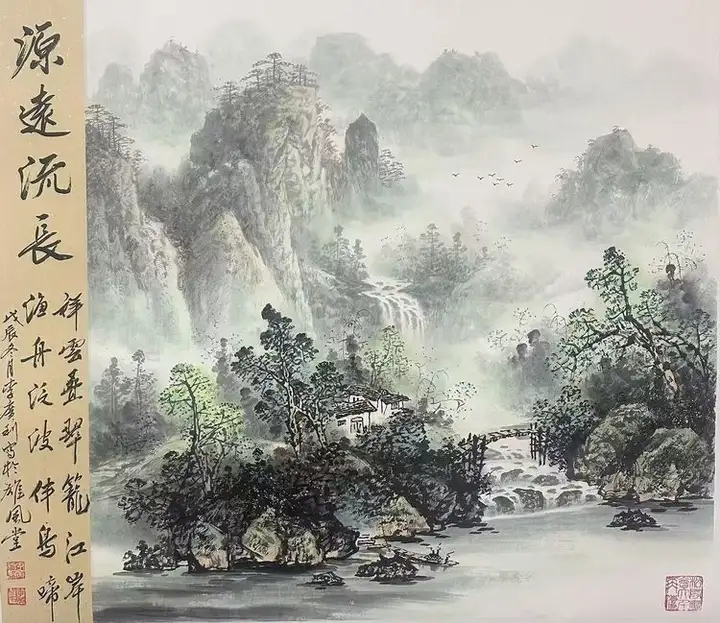 源遠流長
祥雲叠翠籠江岸
渔舟泛波伴鳥啼
戊辰冬月李广利寫於雄風堂